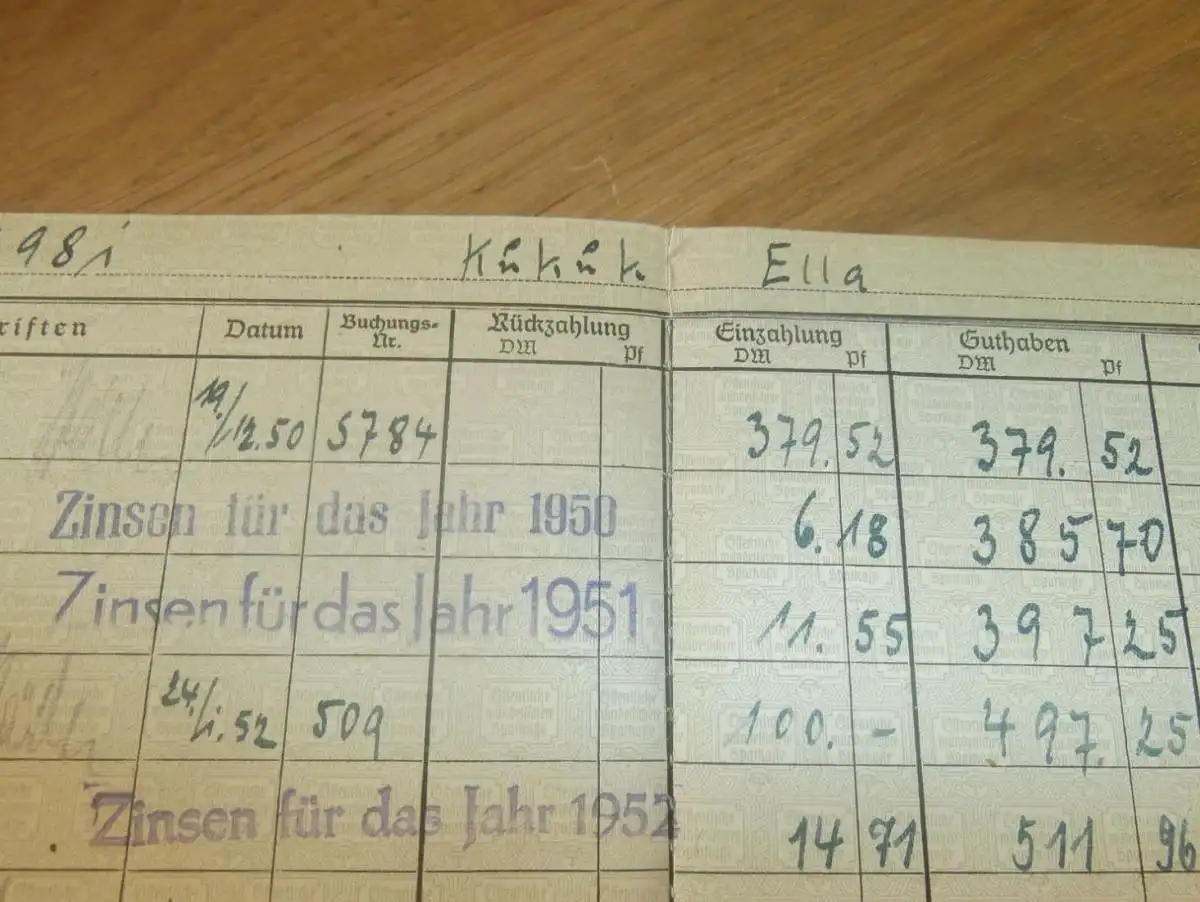 981 Kukuk Ella
riften Datum Buchungs-Nr. Rückzahlung DM Pf Einzahlung DM Pf Guthaben DM Pf
19./12.50 5784 379. 52 379. 52
Zinsen für das Jahr 1950 6. 18 385 70
Zinsen für das Jahr 1951 11. 55 397 25
24./1.52 509 100. - 497. 25
Zinsen für das Jahr 1952 14 71 511 96